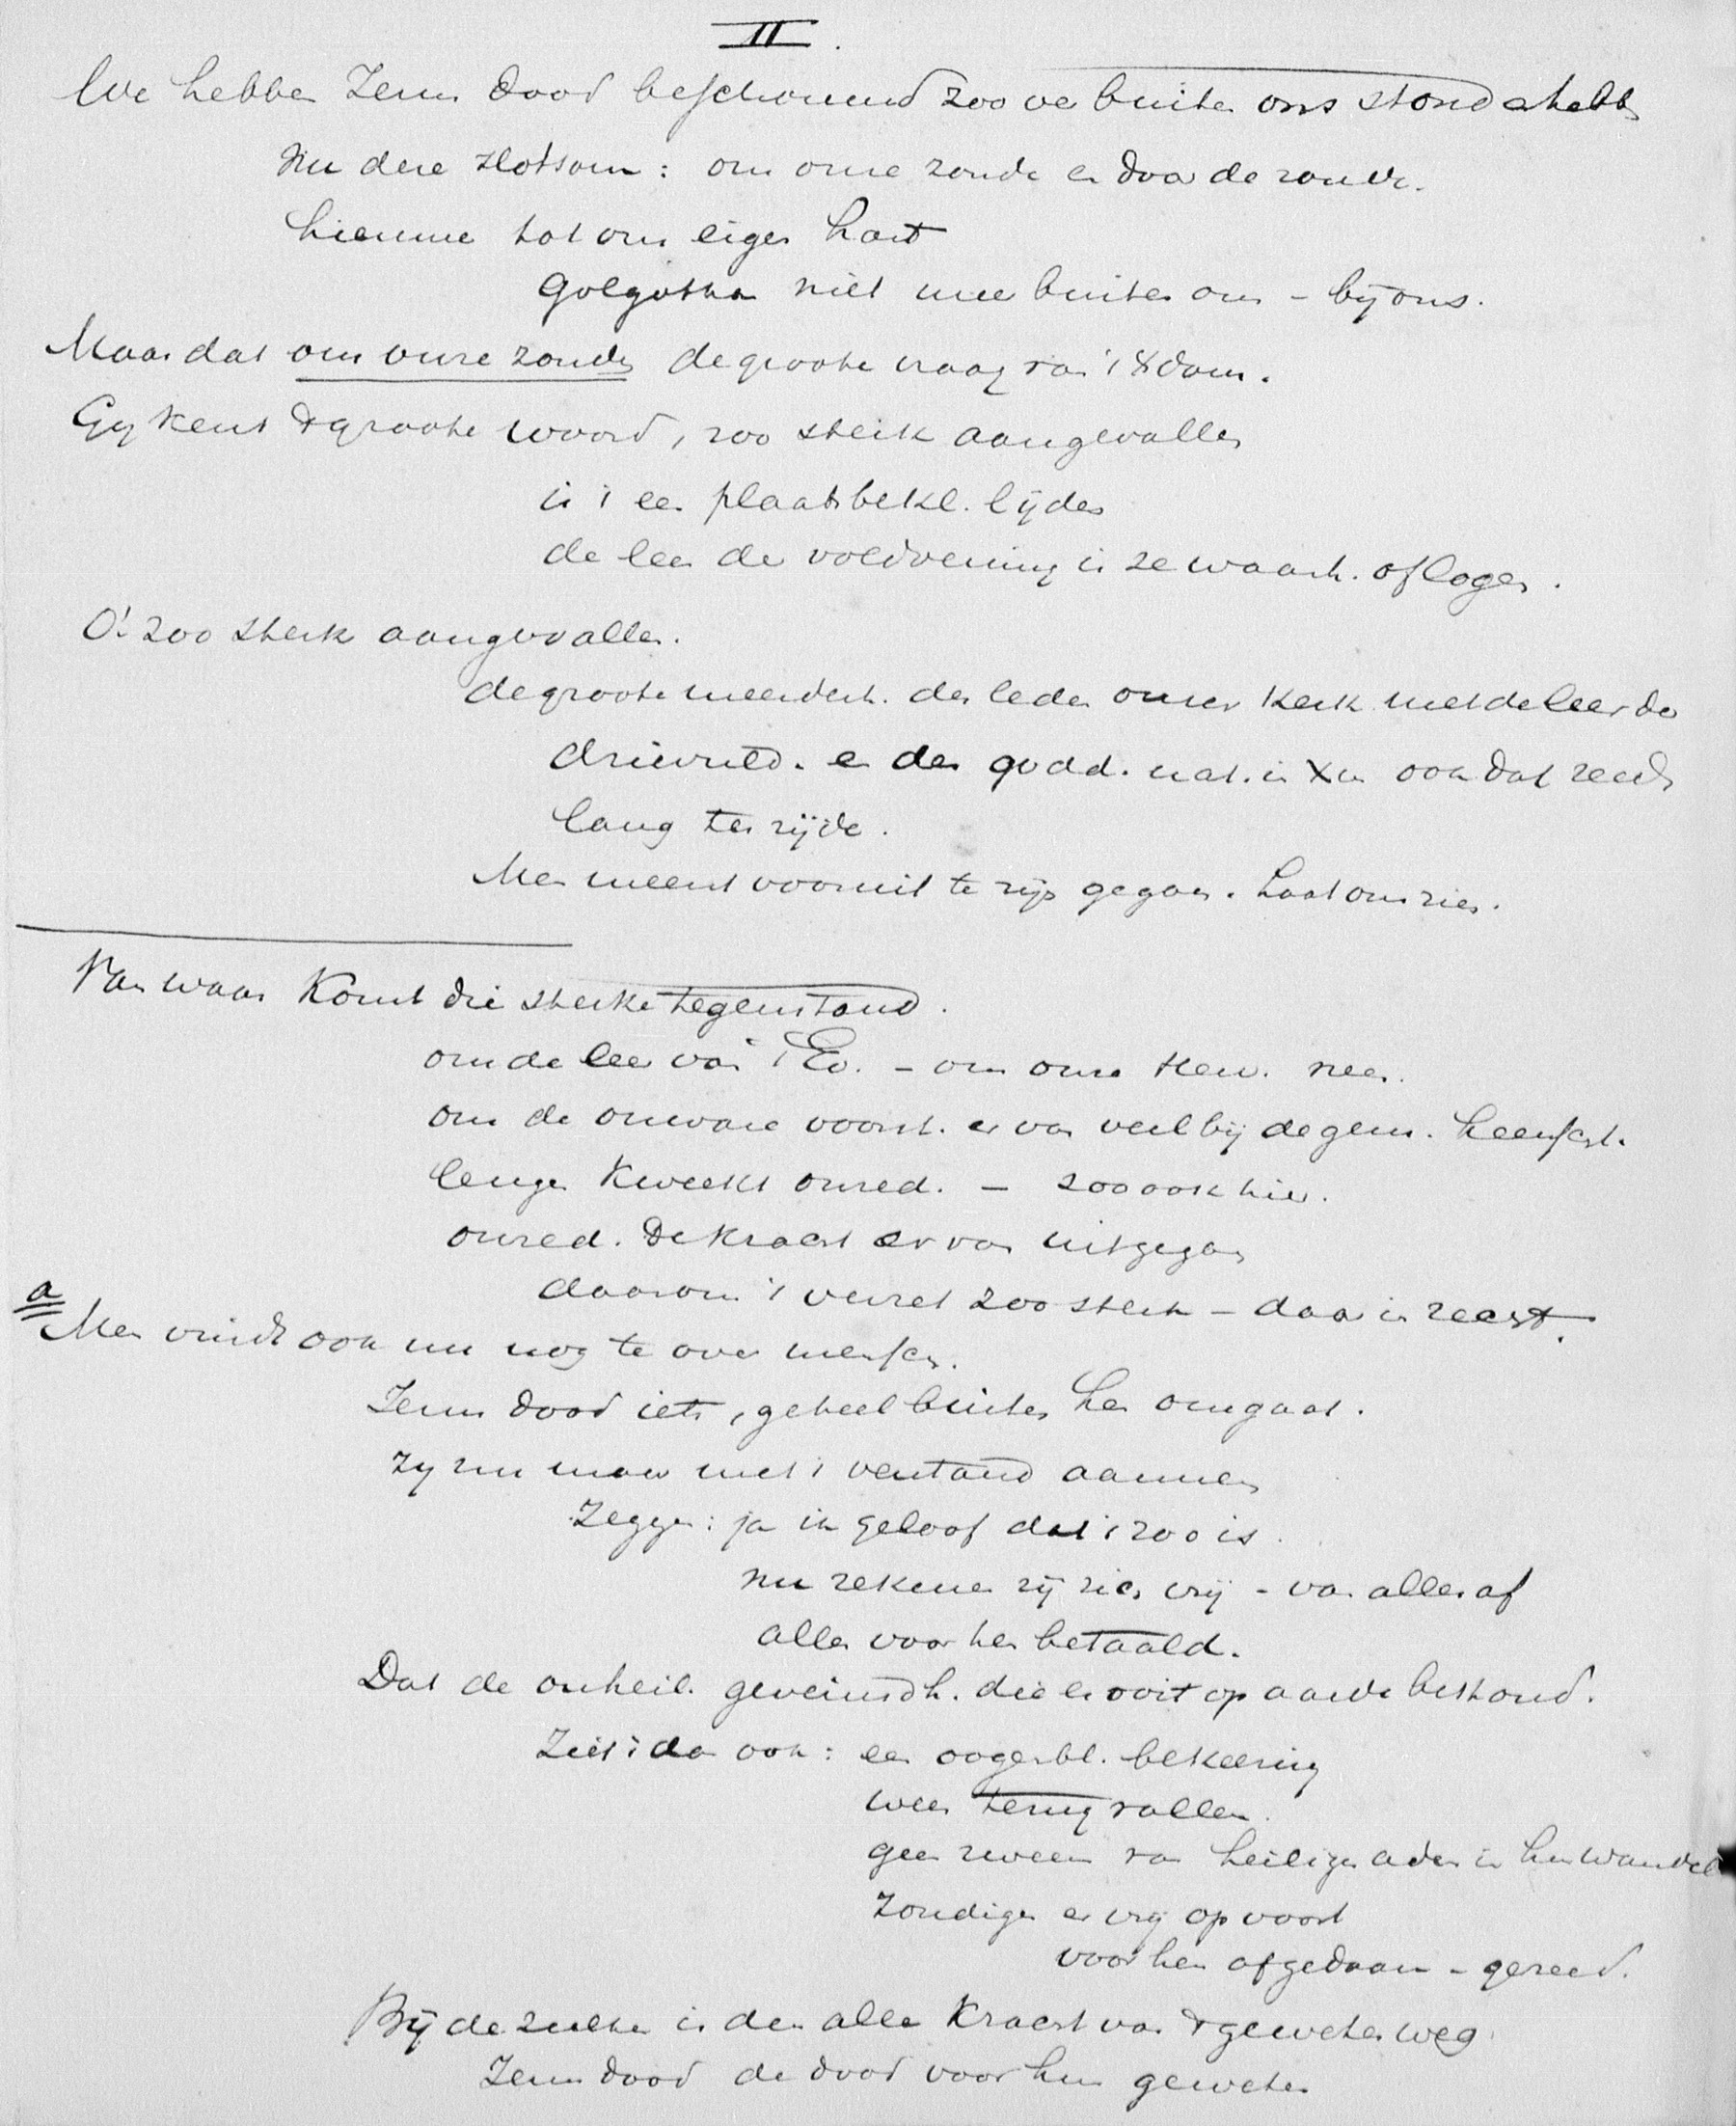 II.
We hebben Jezus dood beschouwend zoo ver buiten ons stond en hebb
nu deze slotsom: om onze zonde en door de zonde.
hiermee tot ons eigen hart
Golgotha niet meer buiten ons - bij ons.
Maar dat om onze zonde de groote vraag van 't Xdom.
Gy kent 't groote woord, zoo sterk aangevallen
is 't een plaatsbekl. lijden
de leer der voldoening is ze waarh. of logen.
O! zoo sterk aangevallen.
de groote meerderh. der leden onzer kerk met de leer der
drieëenh. en der godd. nat. in Xus ook dat reeds
lang ter zijde.
Men meent vooruit te zijn gegaan. Laat ons zien.
Van waar komt die sterke tegenstand.
om de leer van 't Ev. - om onze kerk. neen.
om de onware voorst. er van veel bij de gem. heerscht.
leugen kweekt onred. - zoo ook hier.
onred. de kracht er van uitgegaan
daarom 't verzet zoo sterk - daar in recht.
a Men vindt ook nu nog te over menschen.
Jezus dood iets, geheel buiten hen omgaat.
Zy nu maar met 't verstand aannemen
Zeggen: ja ik geloof dat 't zoo is.
nu rekenen zij zich vrij - van alles af
alles voor hen betaald.
Dat de onheil. geveinsdh. die er ooit op aarde bestond.
Ziet 't dan ook: een oogenbl. bekeering
weer terugvallen.
geen zweem van heilig ader in hun wandel
Zondigen er vrij op voort
voor hen afgedaan - gereed.
Bij dezulken is dan alle kracht van 't geweten weg
Jezus dood de dood voor hun geweten